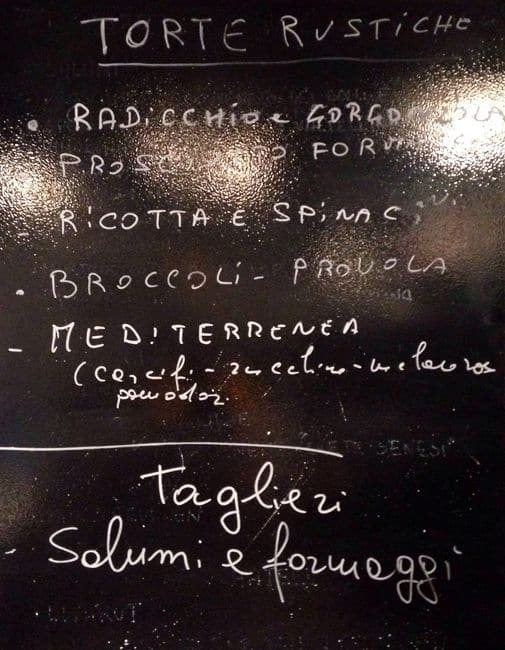 TORTE RUSTICHE
• RADICCHIO e GORGONZOLA
PROSCIUTTO FORMAGGIO
- RICOTTA E SPINACI
• BROCCOLI - PROVOLA
- MEDITERRENEA
(carciofi - zucchine - melanzane
pomodori
Taglieri
- Salumi e formaggi
SENESI